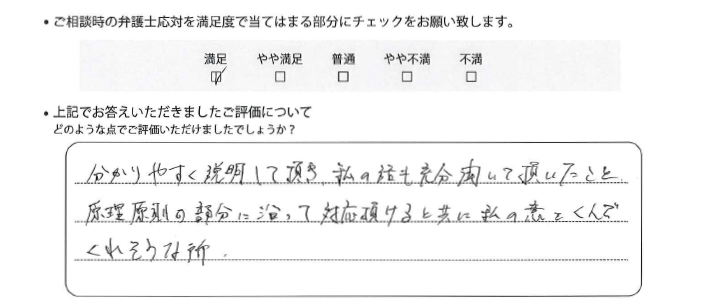 • ご相談時の弁護士応対を満足度で当てはまる部分にチェックをお願い致します。
満足 やや満足 普通 やや不満 不満
☑ □ □ □ □
• 上記でお答えいただきましたご評価について
どのような点でご評価いただけましたでしょうか？
分かりやすく説明して頂き、私の話も充分聞いて頂いたこと、
原理原則の部分に沿って対応頂けると共に私の意をくんで
くれそうな所.